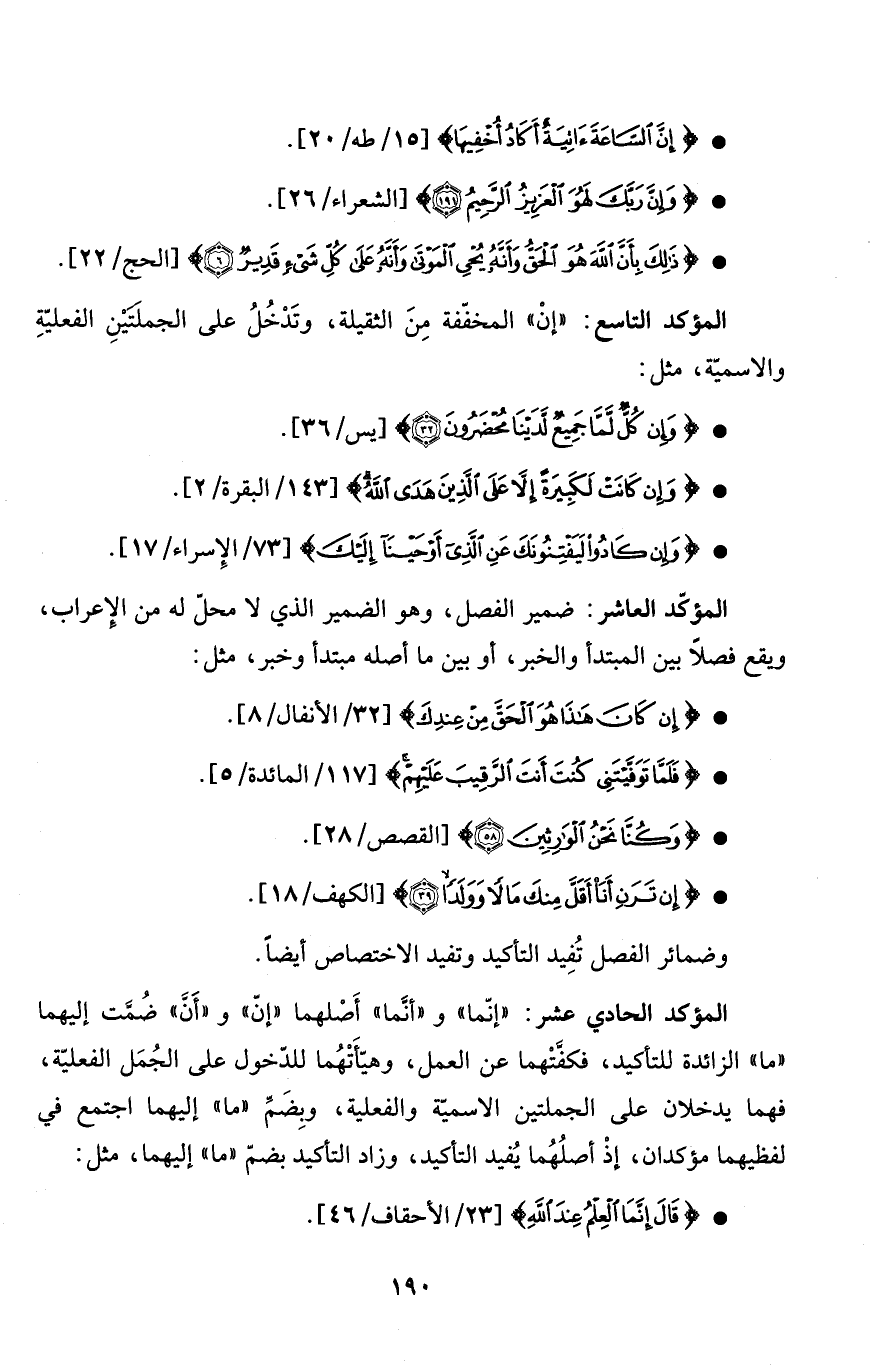 ● ﴿ إِنَّ ٱلسَّاعَةَ ءَاتِيَةٌ أَكَادُ أُخْفِيهَا﴾ [١٥/ طه/ ٢٠].
● ﴿ وَإِنَّ رَبَّكَ لَهُوَ ٱلْعَزِيزُ ٱلرَّحِيمُ ١٩١﴾ [الشعراء/ ٢٦].
● ﴿ ذَٰلِكَ بِأَنَّ ٱللَّهَ هُوَ ٱلْحَقُّ وَأَنَّهُۥ يُحْيِ ٱلْمَوْتَىٰ وَأَنَّهُۥ عَلَىٰ كُلِّ شَىْءٍ قَدِيرٌ ٦﴾ [الحج/ ٢٢].
المؤكد التاسع: «إنْ» المخفّفة مِنَ الثقيلة، وتَدْخُلُ على الجملتَيْنِ الفعليّةِ
والاسميّة، مثل:
● ﴿ وَإِن كُلٌّ لَّمَّا جَمِيعٌ لَّدَيْنَا مُحْضَرُونَ ٣٢﴾ [يس/ ٣٦].
● ﴿ وَإِن كَانَتْ لَكَبِيرَةً إِلَّا عَلَى ٱلَّذِينَ هَدَى ٱللَّهُ﴾ [١٤٣/ البقرة/ ٢].
● ﴿ وَإِن كَادُوا۟ لَيَفْتِنُونَكَ عَنِ ٱلَّذِىٓ أَوْحَيْنَآ إِلَيْكَ﴾ [٧٣/ الإسراء/ ١٧].
المؤكّد العاشر: ضمير الفصل، وهو الضمير الذي لا محلّ له من الإعراب،
ويقع فصلاً بين المبتدأ والخبر، أو بين ما أصله مبتدأ وخبر، مثل:
● ﴿ إِن كَانَ هَٰذَا هُوَ ٱلْحَقَّ مِنْ عِندِكَ﴾ [٣٢/ الأنفال/ ٨].
● ﴿ فَلَمَّا تَوَفَّيْتَنِى كُنتَ أَنتَ ٱلرَّقِيبَ عَلَيْهِمْ﴾ [١١٧/ المائدة/ ٥].
● ﴿ وَكُنَّا نَحْنُ ٱلْوَٰرِثِينَ ٥٨﴾ [القصص/ ٢٨].
● ﴿ إِن تَرَنِ أَنَا۠ أَقَلَّ مِنكَ مَالًا وَوَلَدًا ٣٩﴾ [الكهف/ ١٨].
وضمائر الفصل تُفِيد التأكيد وتفيد الاختصاص أيضاً.
المؤكد الحادي عشر: «إنّما» و «أنَّما» أَصْلهما «إنّ» و «أَنَّ» ضُمَّت إليهما
«ما» الزائدة للتأكيد، فكفَّتْهما عن العمل، وهيّأَتْهُما للدّخول على الجُمَل الفعليّة،
فهما يدخلان على الجملتين الاسميّة والفعلية، وبِضَمِّ «ما» إليهما اجتمع في
لفظيهما مؤكدان، إذْ أصلُهُما يُفيد التأكيد، وزاد التأكيد بضمّ «ما» إليهما، مثل:
● ﴿ قَالَ إِنَّمَا ٱلْعِلْمُ عِندَ ٱللَّهِ﴾ [٢٣/ الأحقاف/ ٤٦].
١٩٠